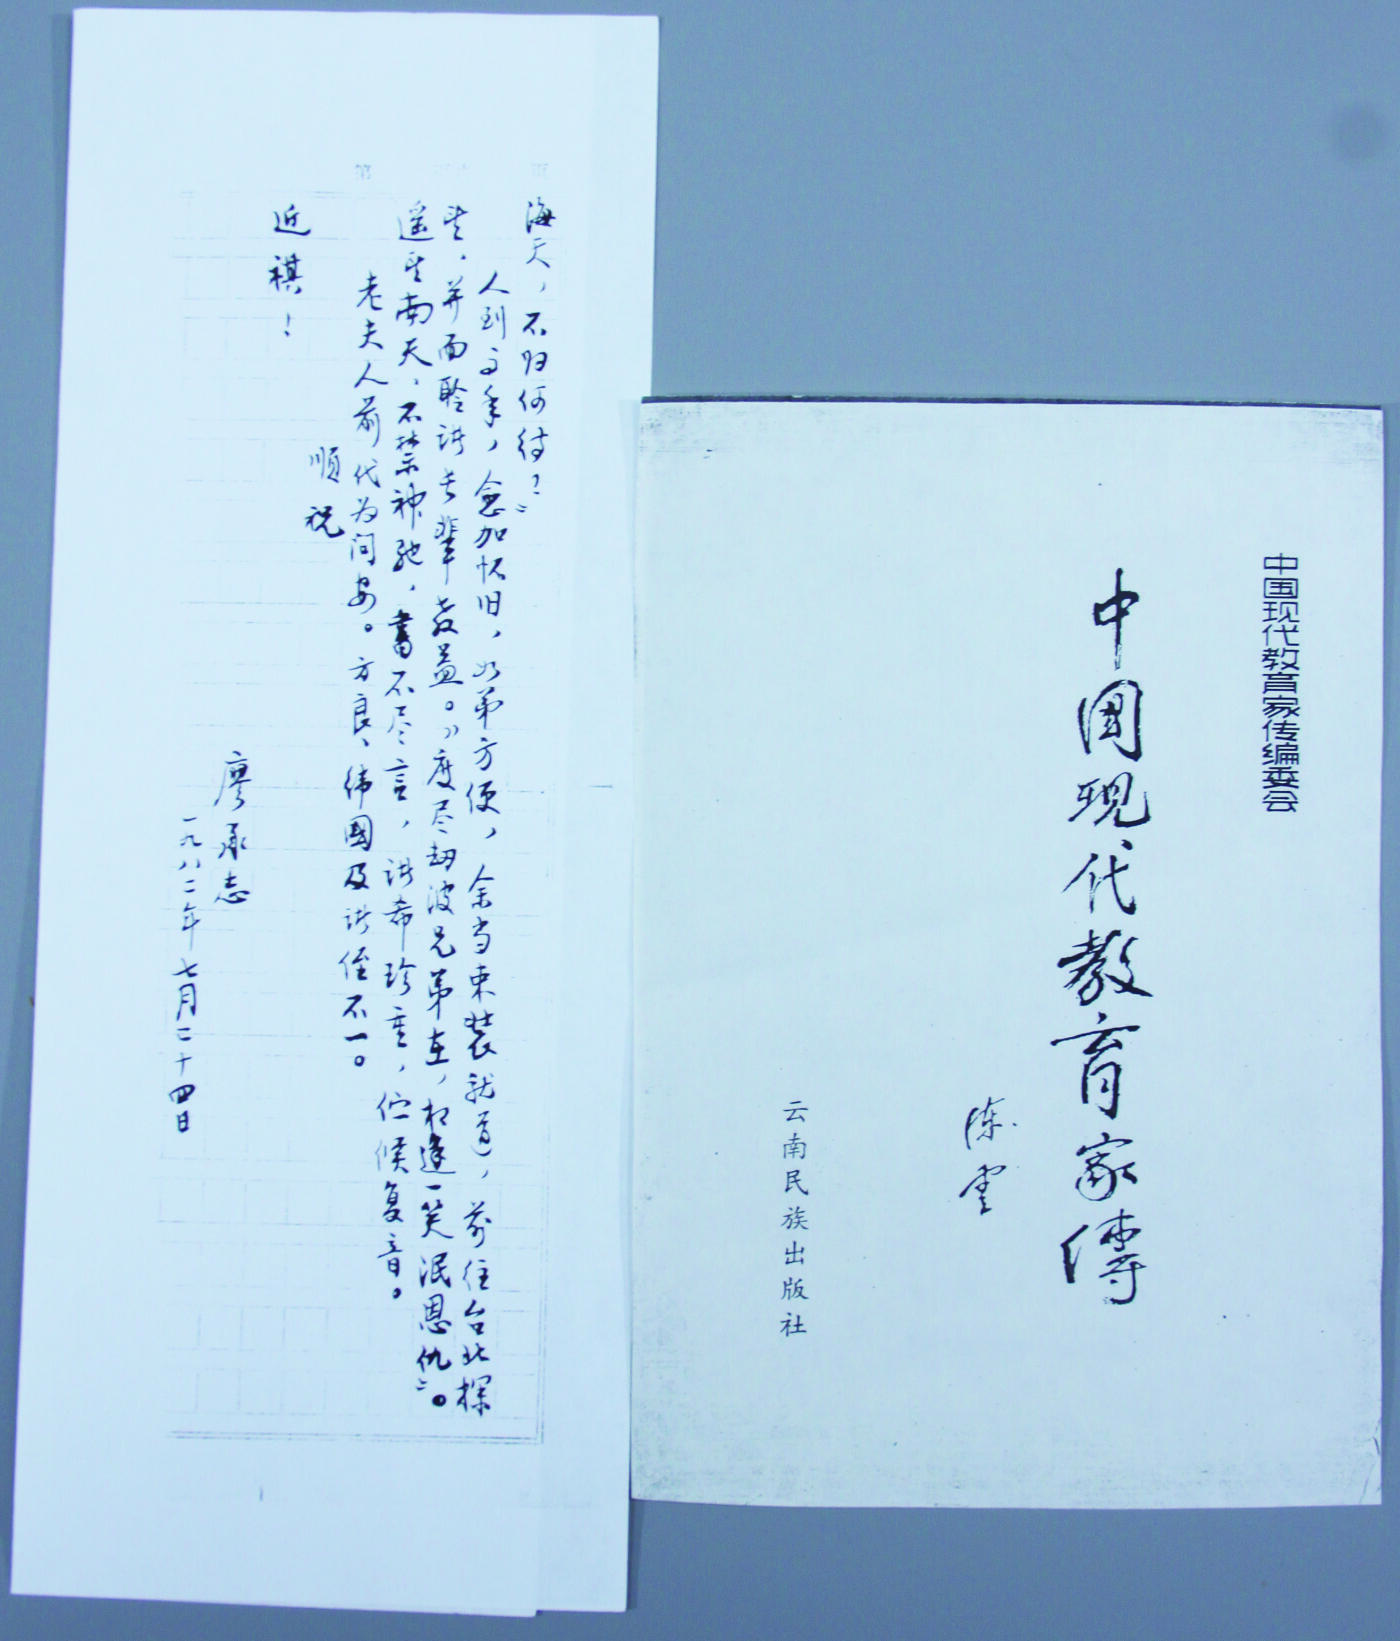 第 页
海天，不归何待？”
人到高年，愈加怀旧，如弟方便，余当束装就道，前往台北探
望，并面聆诸长辈教益。“度尽劫波兄弟在，相逢一笑泯恩仇”。
遥望南天，不禁神驰，書不尽言，诸希珍重，伫候复音。
老夫人前代为问安。方良、纬國及诸侄不一。
順祝
近祺！
廖承志
一九八二年七月二十四日
中国现代教育家传编委会
中國现代教育家傳
陈云
云南民族出版社